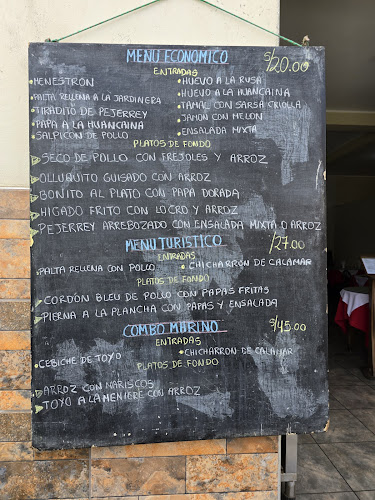 MENÚ ECONOMICO S/20.00
ENTRADAS
•MENESTRÓN
•PALTA RELLENA A LA JARDINERA
•TIRADITO DE PEJERREY
•PAPA A LA HUANCAINA
•SALPICON DE POLLO
•HUEVO A LA RUSA
•HUEVO A LA HUANCAINA
•TAMAL CON SARSA CRIOLLA
•JAMON CON MELON
•ENSALADA MIXTA
PLATOS DE FONDO
SECO DE POLLO CON FREJOLES Y ARROZ
OLLUQUITO GUISADO CON ARROZ
BONITO AL PLATO CON PAPA DORADA
HIGADO FRITO CON LOCRO Y ARROZ
PEJERREY ARREBOZADO CON ENSALADA MIXTA O ARROZ
MENÚ TURISTICO S/27.00
ENTRADAS
•PALTA RELLENA CON POLLO •CHICHARRÓN DE CALAMAR
PLATOS DE FONDO
CORDÓN BLEU DE POLLO CON PAPAS FRITAS
PIERNA A LA PLANCHA CON PAPAS Y ENSALADA
COMBO MARINO S/45.00
ENTRADAS
•CEBICHE DE TOYO •CHICHARRON DE CALAMAR
PLATOS DE FONDO
ARROZ CON MARISCOS
TOYO A LA MENIERE CON ARROZ